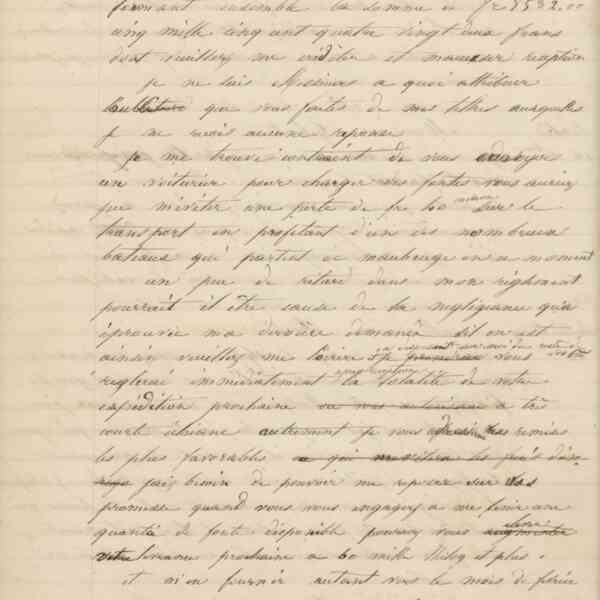 formant ensemble la somme de fr 8582.00
cinq mille cinq cent quatre vingt deux francs
dont veuillez me créditer et maccuser reception
je ne sais Messieurs a quoi attribuer
que vous faites de mes lettres auxquelles
je ne recois aucune reponse
Je me trouve contraint de vous envoyer
un voiturier pour charger vos fontes vous auriez
pu m'eviter une perte de fr 60 sur le
transport en profitant d'un des nombreux
bateaux qui partent de maubeuge en ce moment
un peu de retard dans mon règlement
pourrait il être cause de la negligeance qu'a
éprouvée ma dernière demande sil en est
ainsi veuillez me l'ecrire je vous
règlerai immédiatement la totalité de votre
expédition prochaine ou vous a très
courte échéance autrement je vous remises
les plus favorables
jai besoin de pouvoir me reposer sur vos
promesses quand vous vous engagez a me livrer une
quantité de fonte disponible pourriez vous
livraison prochaine a 60 mille Kilog et plus.
et m'en fournir autant vers le mois de février